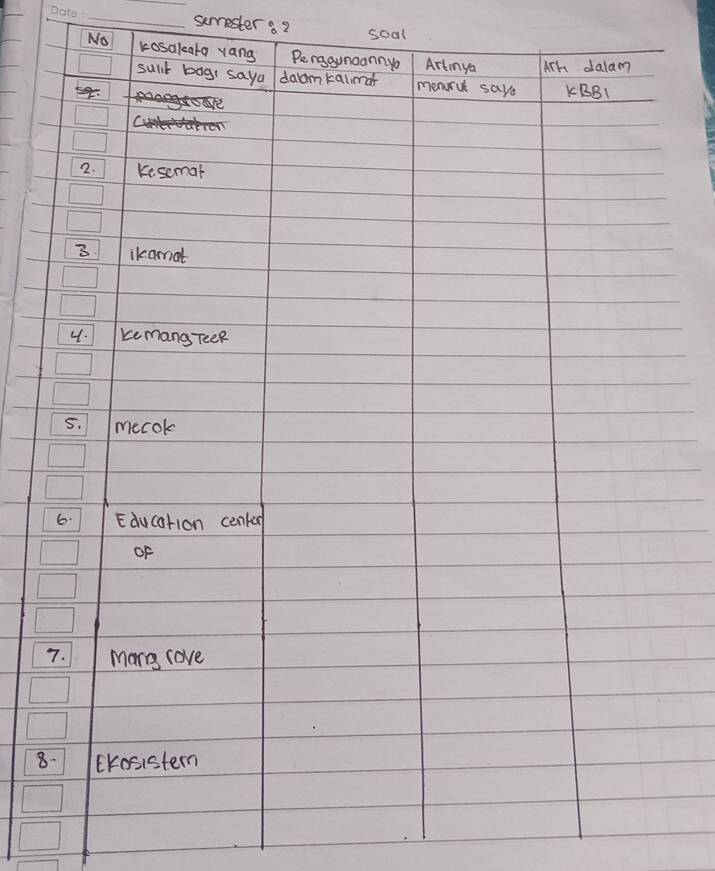 Date:
semester : 2
soal
No | kosakata yang sulit bagi saya | Penggunaannya dalam kalimat | Artinya menurut saya | Arti dalam KBBI
mangrove
Curtivation
2. kesemat
3. ikamat
4. kemangTeer
5. mecok
6. Education center
of
7. mangrove
8. Ekosistem